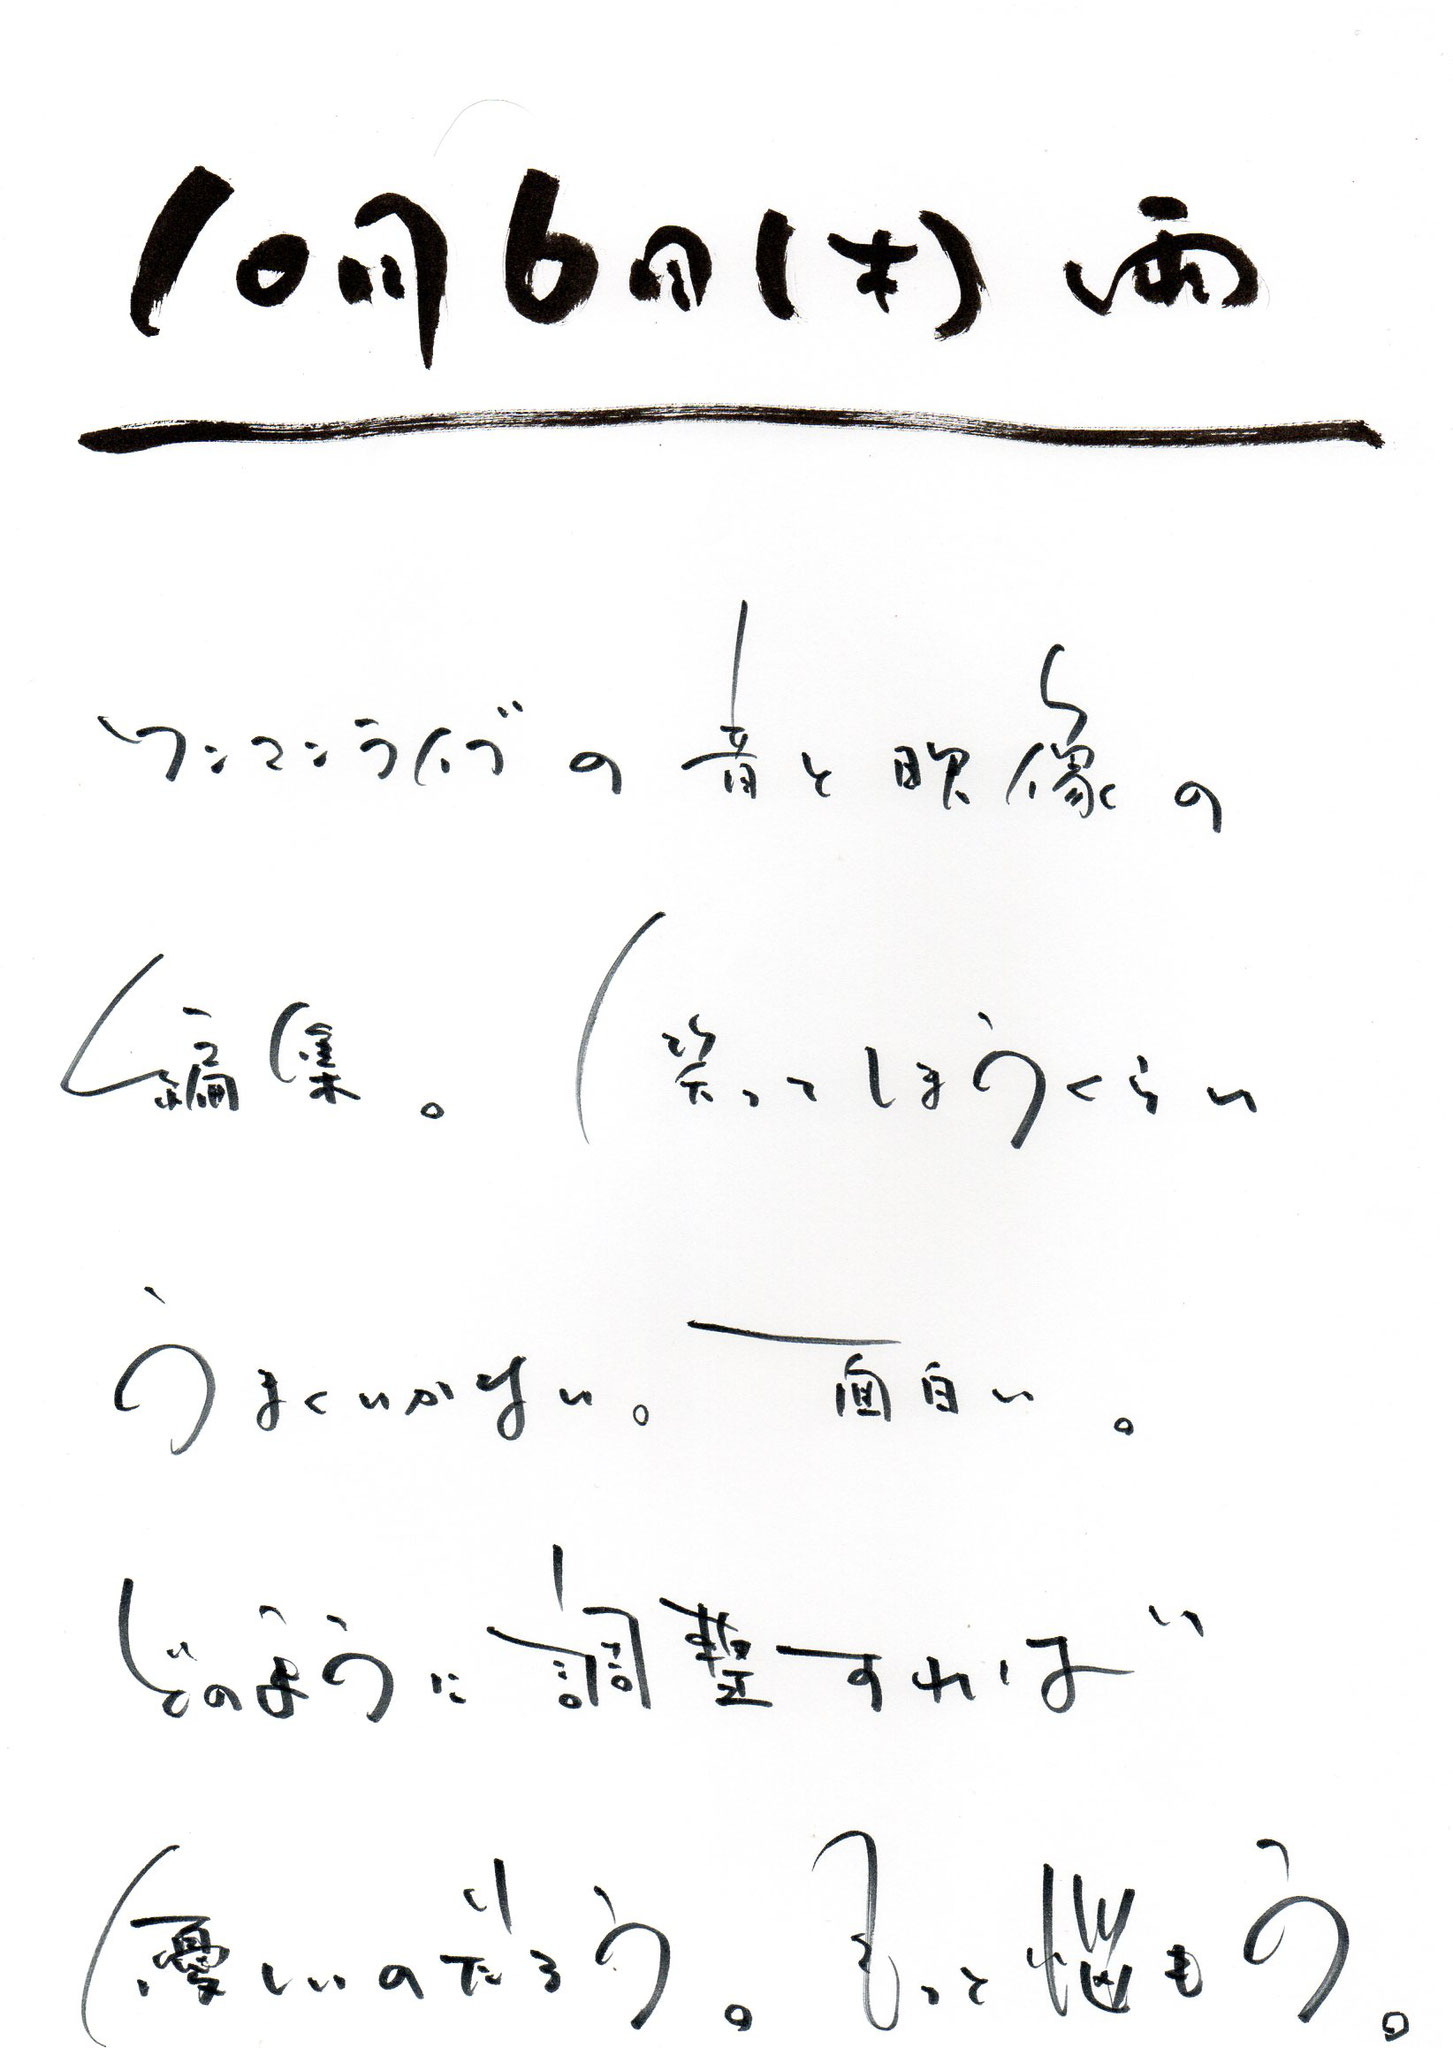 10月6日(木) 雨
ワンマンライブの音と映像の
編集。笑ってしまうくらい
うまくいかない。面白い。
どのように調整すれば
優しいのだろう。もっと悩もう。